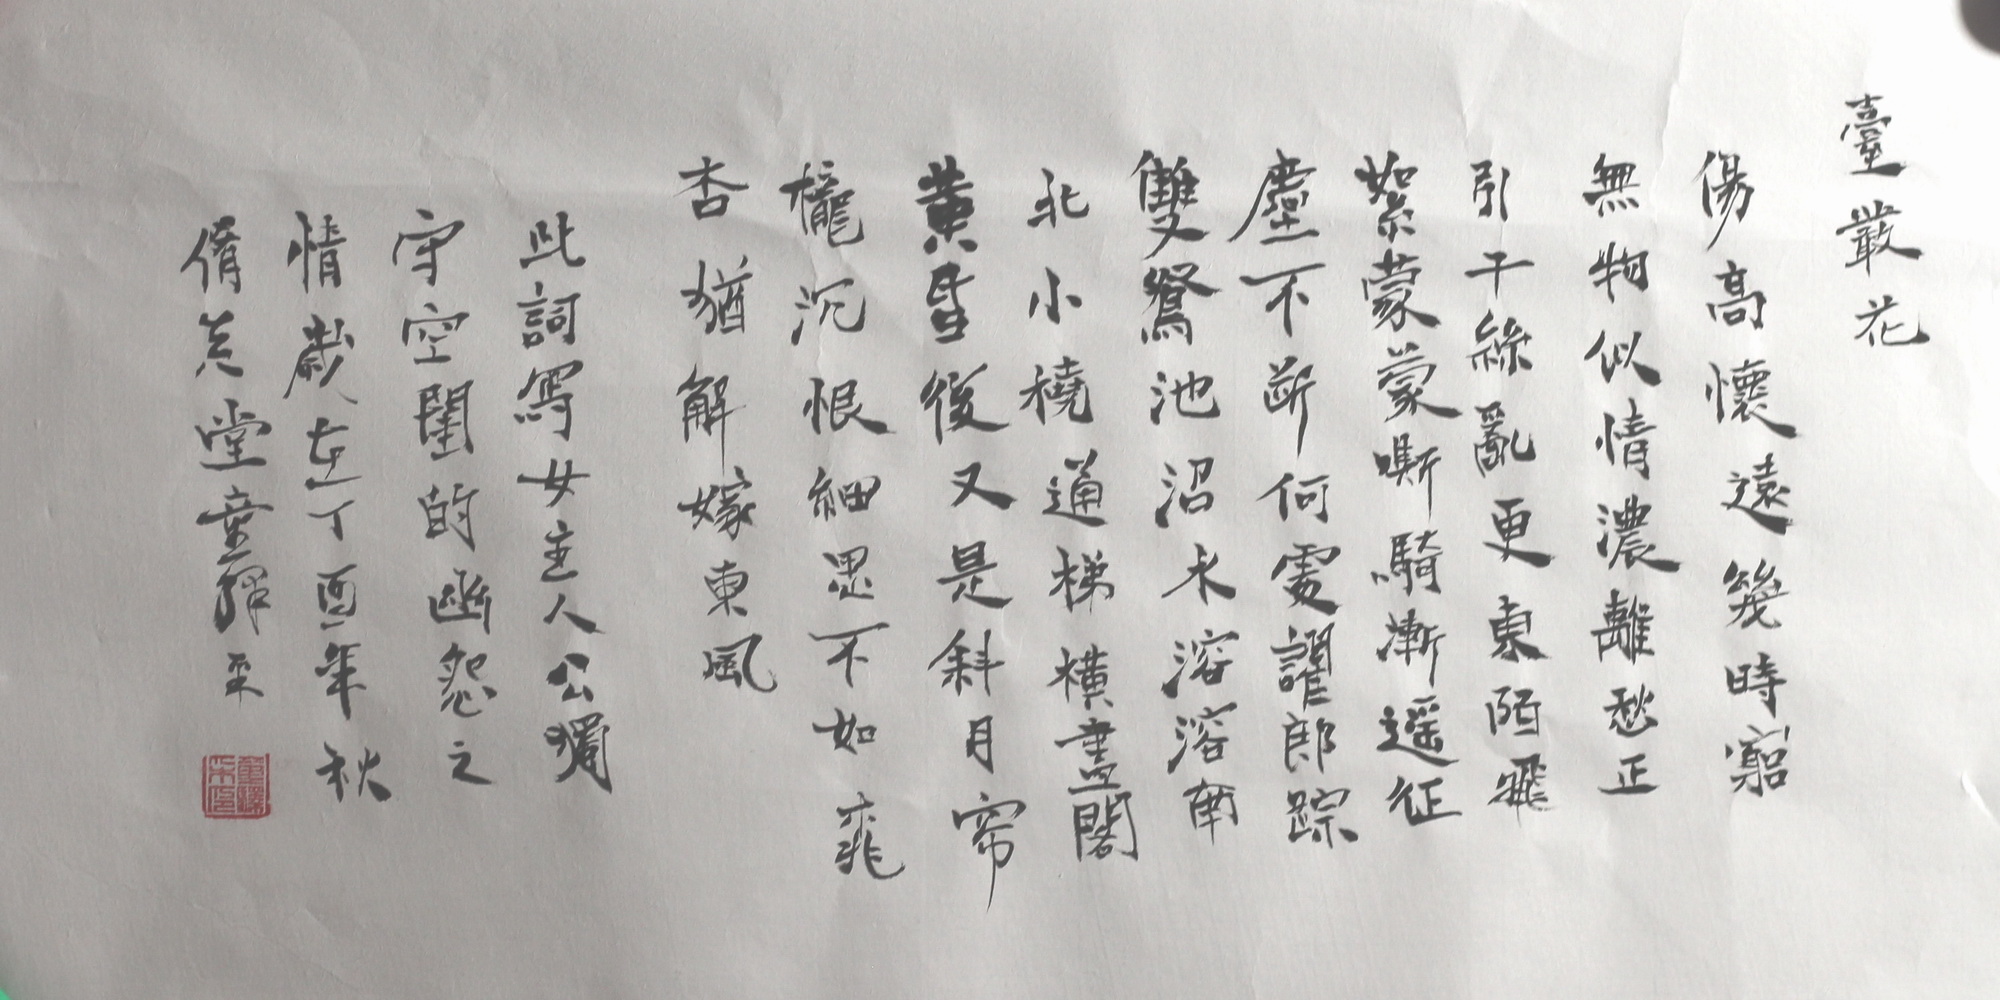 臺叢花
傷高懷遠幾時窮
無物似情濃離愁正
引千絲亂更東陌飛
絮蒙蒙嘶騎漸遥征
塵不斷何處認郎踪
雙鴛池沼水溶溶南
北小橈通梯橫畫閣
黃昏後又是斜月帘
櫳沉恨細思不如桃
杏猶解嫁東風
此詞寫女主人公獨
守空閨的幽怨之
情歲在丁酉年秋
脩堂童釋采